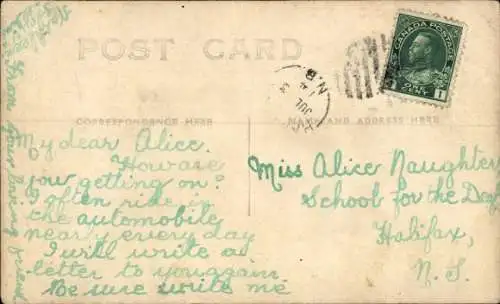 POST CARD
CORRESPONDENCE HERE
NAME AND ADDRESS HERE
CANADA POSTAGE
ONE CENT
1
JUL
N.B.
My dear Alice.
How are
you getting on?
I often ride in
the automobile
nearly every day
I will write a
letter to you again
Be sure write me
From your loving friend
Miss Alice Naughter
School for the Deaf
Halifax,
N. S.